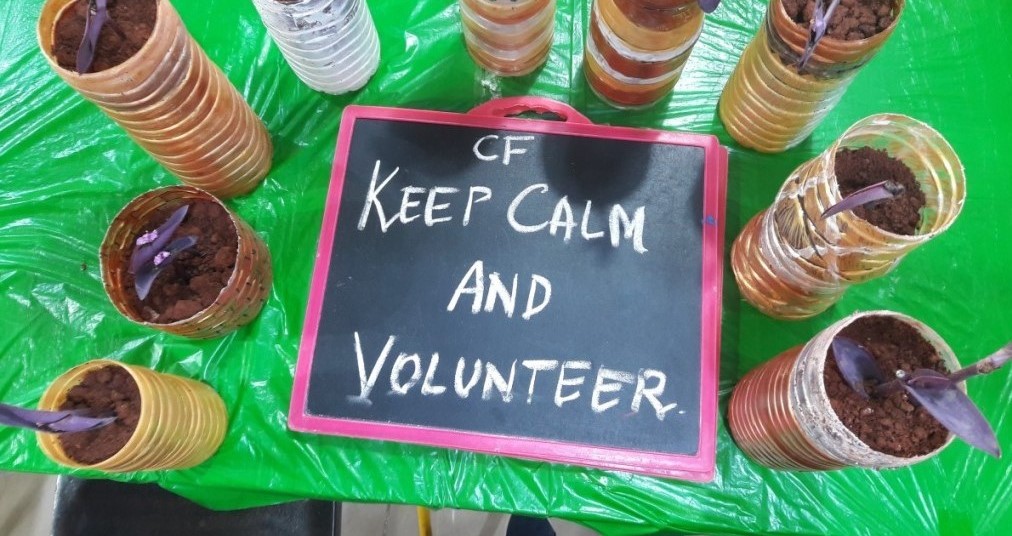 CF
KEEP CALM
AND
VOLUNTEER.